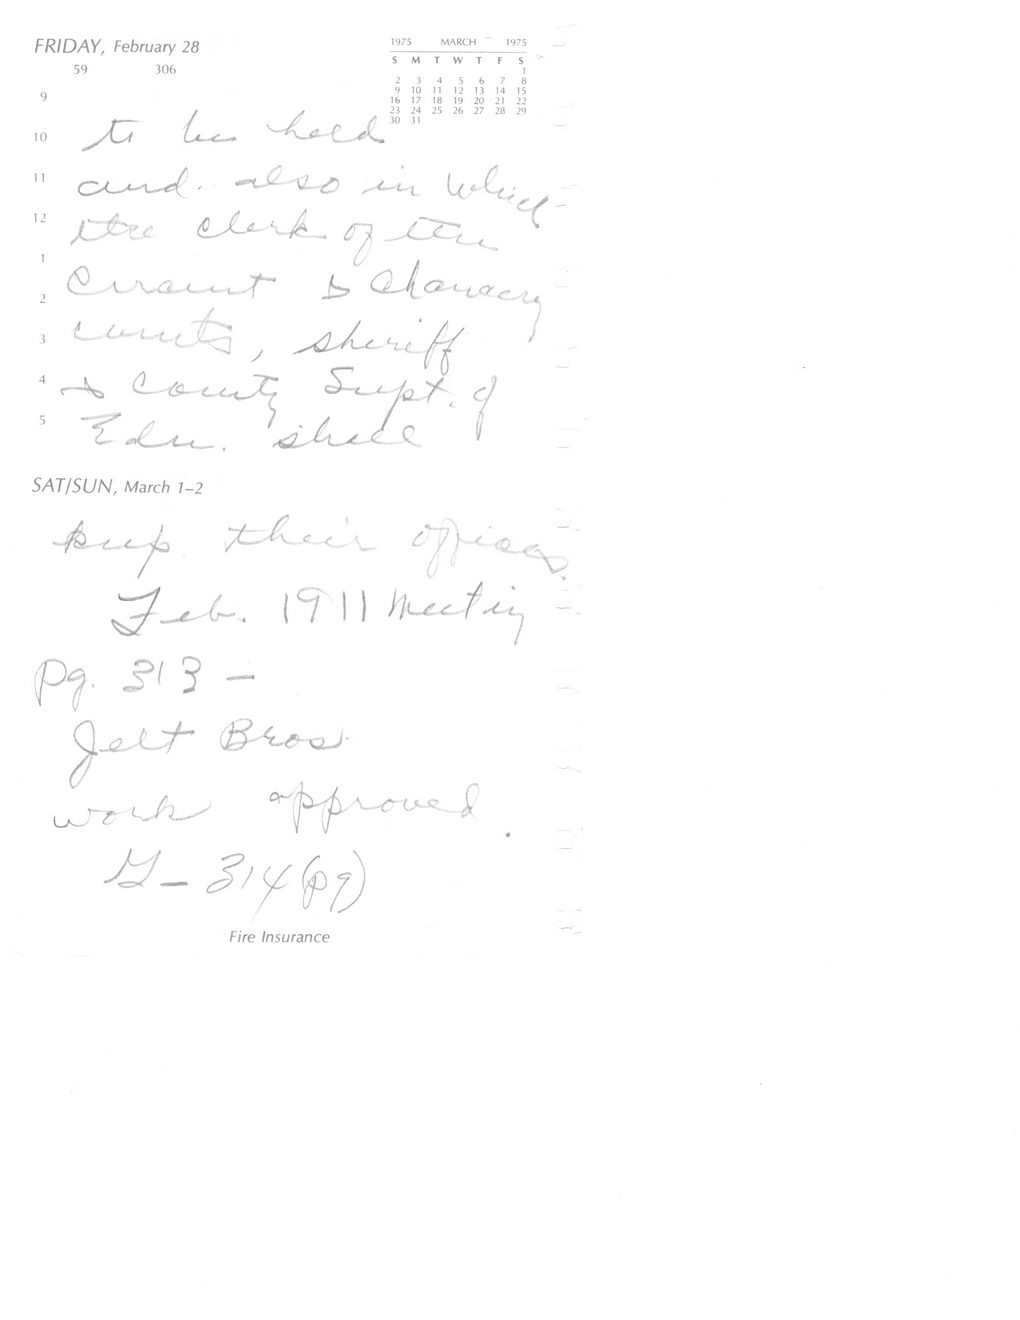 FRIDAY, February 28
59 306
1975 MARCH 1975
S M T W T F S
1
2 3 4 5 6 7 8
9 10 11 12 13 14 15
16 17 18 19 20 21 22
23 24 25 26 27 28 29
30 31
9
10 to be held
11 and also in which
12 the clerk of the
1
Circuit & Chancery
2
3 courts, sheriff
4 & County Supt. of
5 Edu. shall
SAT/SUN, March 1–2
keep their offices.
Feb. 1911 Meeting
pg. 313 –
Jett Bros
work approved.
– 314 (pg)
Fire Insurance